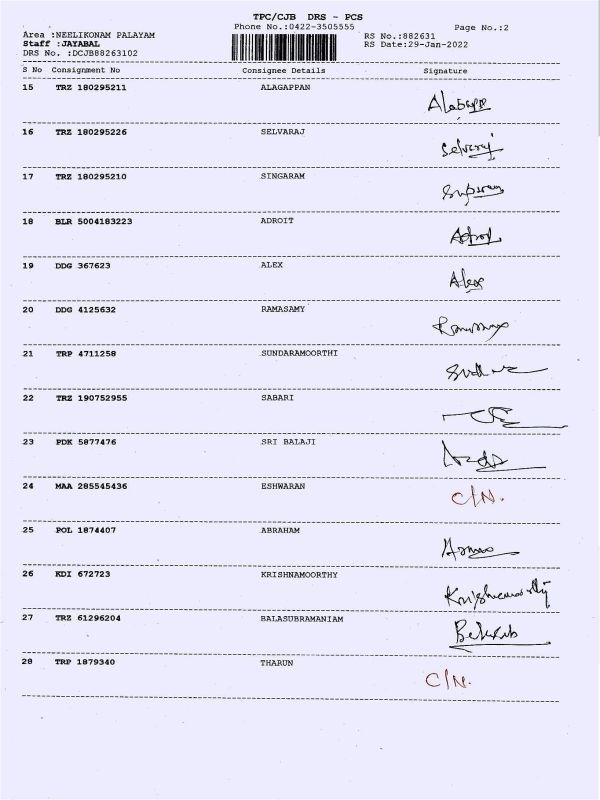 TPC/CJB DRS - PCS
Phone No.:0422-3505555 Page No.:2
Area :NEELIKONAM PALAYAM RS No.:882631
Staff :JAYABAL RS Date:29-Jan-2022
DRS No. :DCJB88263102
S No Consignment No Consignee Details Signature
15 TRZ 180295211 ALAGAPPAN
16 TRZ 180295226 SELVARAJ Selvaraj
17 TRZ 180295210 SINGARAM
18 BLR 5004183223 ADROIT
19 DDG 367623 ALEX Alex
20 DDG 4125632 RAMASAMY
21 TRP 4711258 SUNDARAMOORTHI
22 TRZ 190752955 SABARI
23 PDK 5877476 SRI BALAJI
24 MAA 285545436 ESHWARAN C/N.
25 POL 1874407 ABRAHAM
26 KDI 672723 KRISHNAMOORTHY Krishnamoorthy
27 TRZ 61296204 BALASUBRAMANIAM
28 TRP 1879340 THARUN C/N.